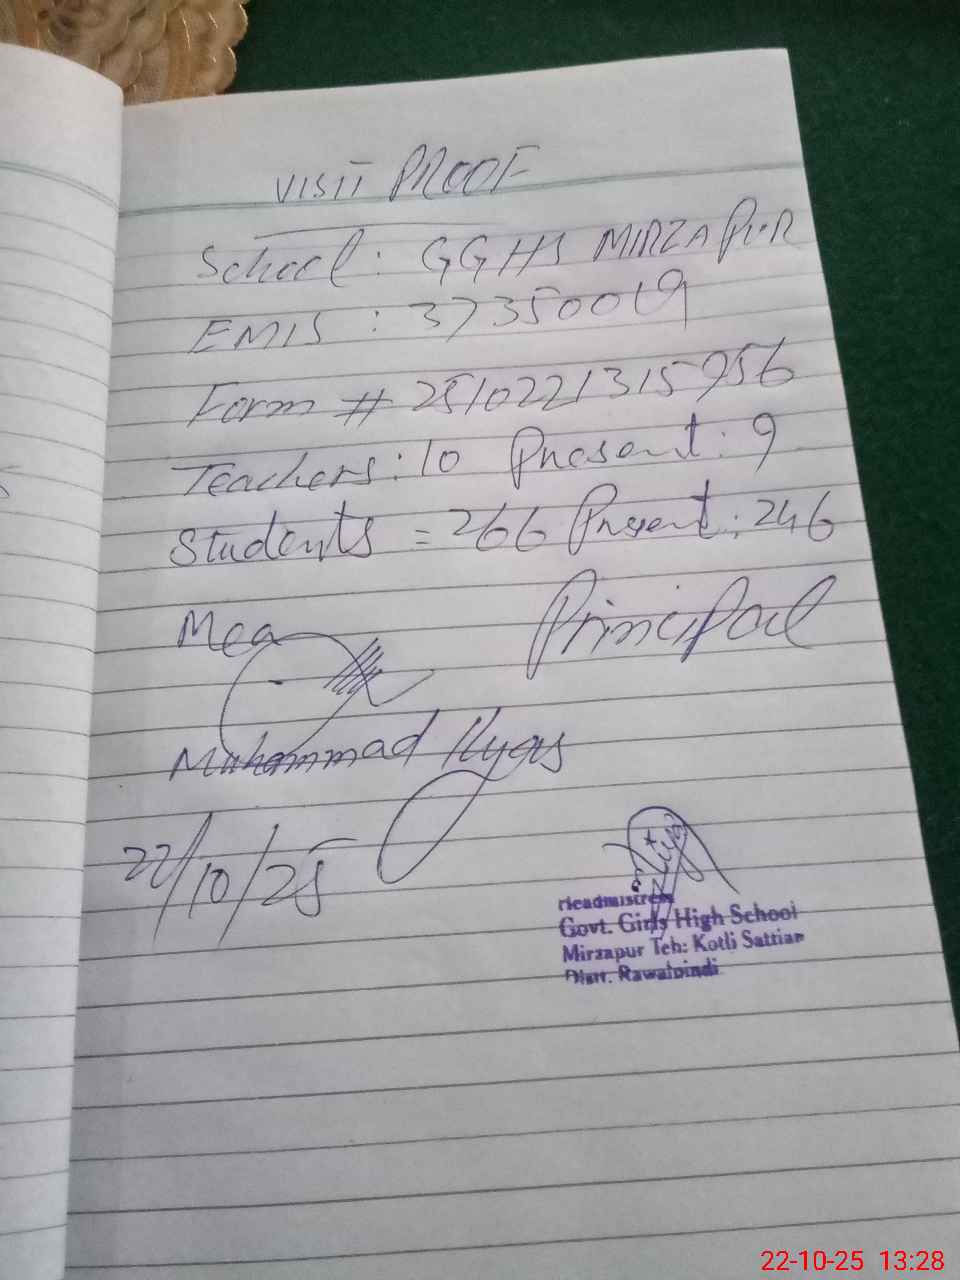 VISIT PROOF
School: GGHS MIRZAPUR
EMIS : 37350019
Form # 2510221315956
Teachers: 10 Present: 9
Students = 266 Present: 246
Mea
Principal
Muhammad Ilyas
22/10/25
Headmistress
Govt. Girls High School
Mirzapur Teh: Kotli Sattian
Distt. Rawalpindi
22-10-25 13:28